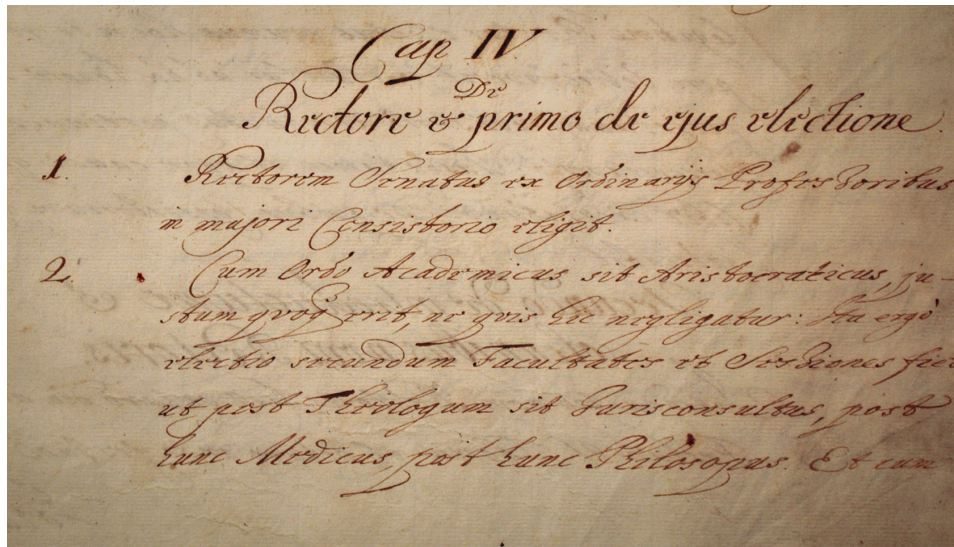 Cap IV.
De
Rectore & primo de ejus electione.
1. Rectorem Senatus ex Ordinarijs Professoribus
in majori Consistorio eligit.
2. Cum Ordo Academicus sit Aristocraticus, ju-
stum qvoq erit, ne qvis hic negligatur: Ita ergo
electio secundum Facultates et Sessiones fiet
ut post Theologum sit Jurisconsultus, post
hunc Medicus, post hunc Philosopus. Et cum